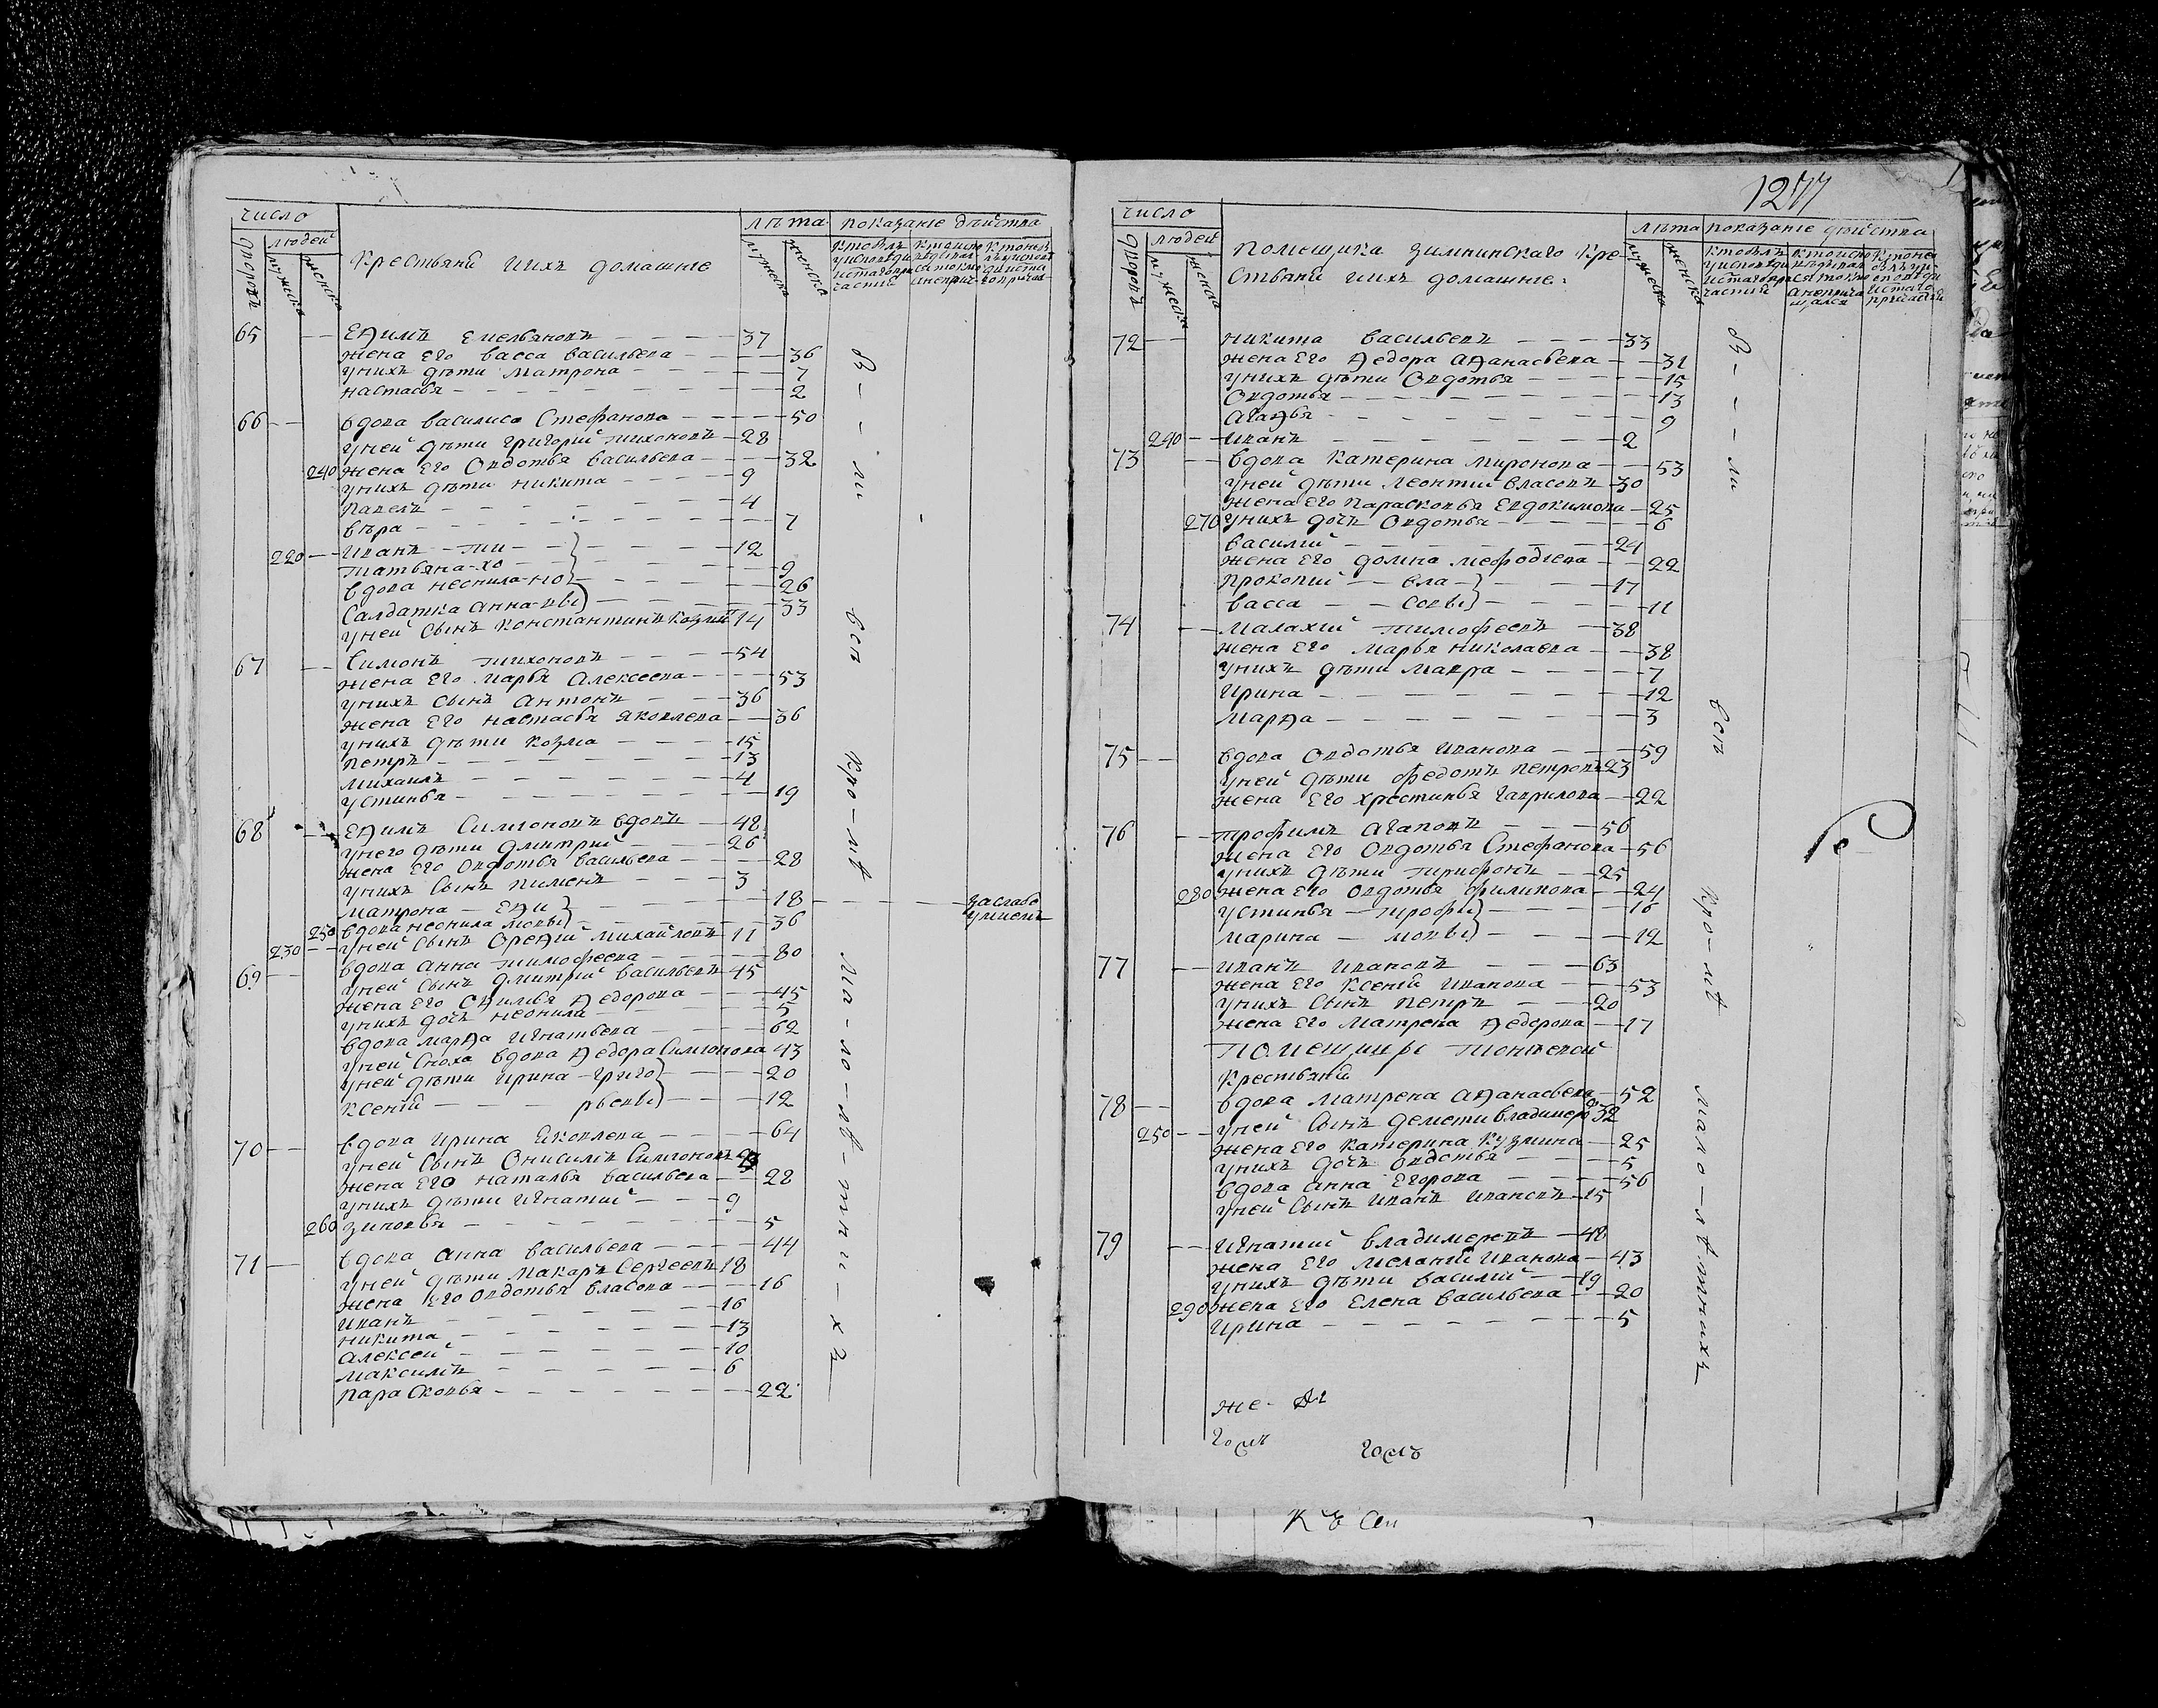 число
дворовъ
людей
мужеска
женска
Крестьяни ихъ домашние
лѣта
мужеска
женска
показание дѣиства
65 Ѳдимъ Емельяновъ 37
жена его васса васильева 36
унихъ дѣти матрона 7
настасья 2
66 вдова василиса Стефанова 50
уней дѣти григорий тихоновъ 28
240 жена его Овдотья васильева 32
унихъ дѣти никита 9
павелъ 4
вѣра 7
220 иванъ ти 12
татьяна хо 9
вдова неонила но 26
Салдатка анна вы 33
уней сынъ Константинъ 14
67 Симонъ тихоновъ 54
жена его марья Алексеева 53
унихъ сынъ антонъ 36
жена его настасья яковлева 36
унихъ дѣти козма 15
петръ 13
михаилъ 4
устинья 19
68 Симоновъ вдовъ 48
унего дѣти дмитрий 26
жена его овдотья васильева 28
унихъ Сынъ пименъ 3
матрона 18
заслабо
умиемъ
250 вдова неонила 36
230 уней сынъ михайловъ 11
69 вдова анна тимофеева 80
уней Сынъ дмитрий васильевъ 45
жена его Ѳедорова 45
унихъ дочь неонила 5
вдова марѳа игнатьева 62
уней Сноха вдова Ѳедора Симонова 43
уней дѣти ирина григо 20
Ксений рьевы 12
70 вдова ирина яковлева 64
уней Сынъ Онисимъ Симоновъ
жена его наталья васильева 28
унихъ дѣти игнатий 9
260 зиновья 5
71 вдова анна васильева 44
уней дѣти макаръ Сергеевъ 18
жена его овдотья власова 16
иванъ 16
никита 13
алексей 10
максимъ 6
парасковья 22
В ли
всѣ
кро-мѣ
ма-ло-лѣ-тни-хъ
1277
число
дворовъ
людей
мужеска
женска
помещика зимнинскаго кре-
стьяни ихъ домашние
лѣта
мужеска
женска
показание дѣиства
72 никита васильевъ 33
жена его Ѳедора аѳанасьева 31
унихъ дѣти Овдотья 15
Овдотья 13
агаѳья 9
240 иванъ 2
73 вдова катерина миронова 53
уней дѣти леонтий власовъ 30
жена его парасковья Евдокимова 25
270 унихъ дочь овдотья 6
василий 24
жена его домна мефодиева 22
прокопий вла 17
васса совы 11
74 малахий тимофеевъ 38
жена его марья николаева 38
унихъ дѣти мавра 7
ирина 12
марѳа 3
75 вдова Овдотья иванова 59
уней дѣти федотъ петровъ 23
жена его христинья гаврилова 22
76 трофимъ агаповъ 56
жена его Овдотья Стефанова 56
унихъ дѣти трифонъ 25
280 жена его овдотья филипова 24
устинья трофи 16
марина мовы 12
77 иванъ ивановъ 63
жена его Ксений иванова 53
унихъ Сынъ петръ 20
жена его матрена Ѳедорова 17
Крестьяни
78 вдова матрена аѳанасьева 52
уней Сынъ демети владимеро 32
250 жена его катерина кузмина 25
унихъ дочь овдотья 5
вдова анна Егорова 56
уней Сынъ иванъ ивановъ 15
79 игнатий владимеровъ 48
жена его мелании иванова 43
унихъ дѣти василий 19
290 жена его Елена васильева 20
ирина 5
В ли
всѣ
кро-мѣ
мало-лѣтнихъ